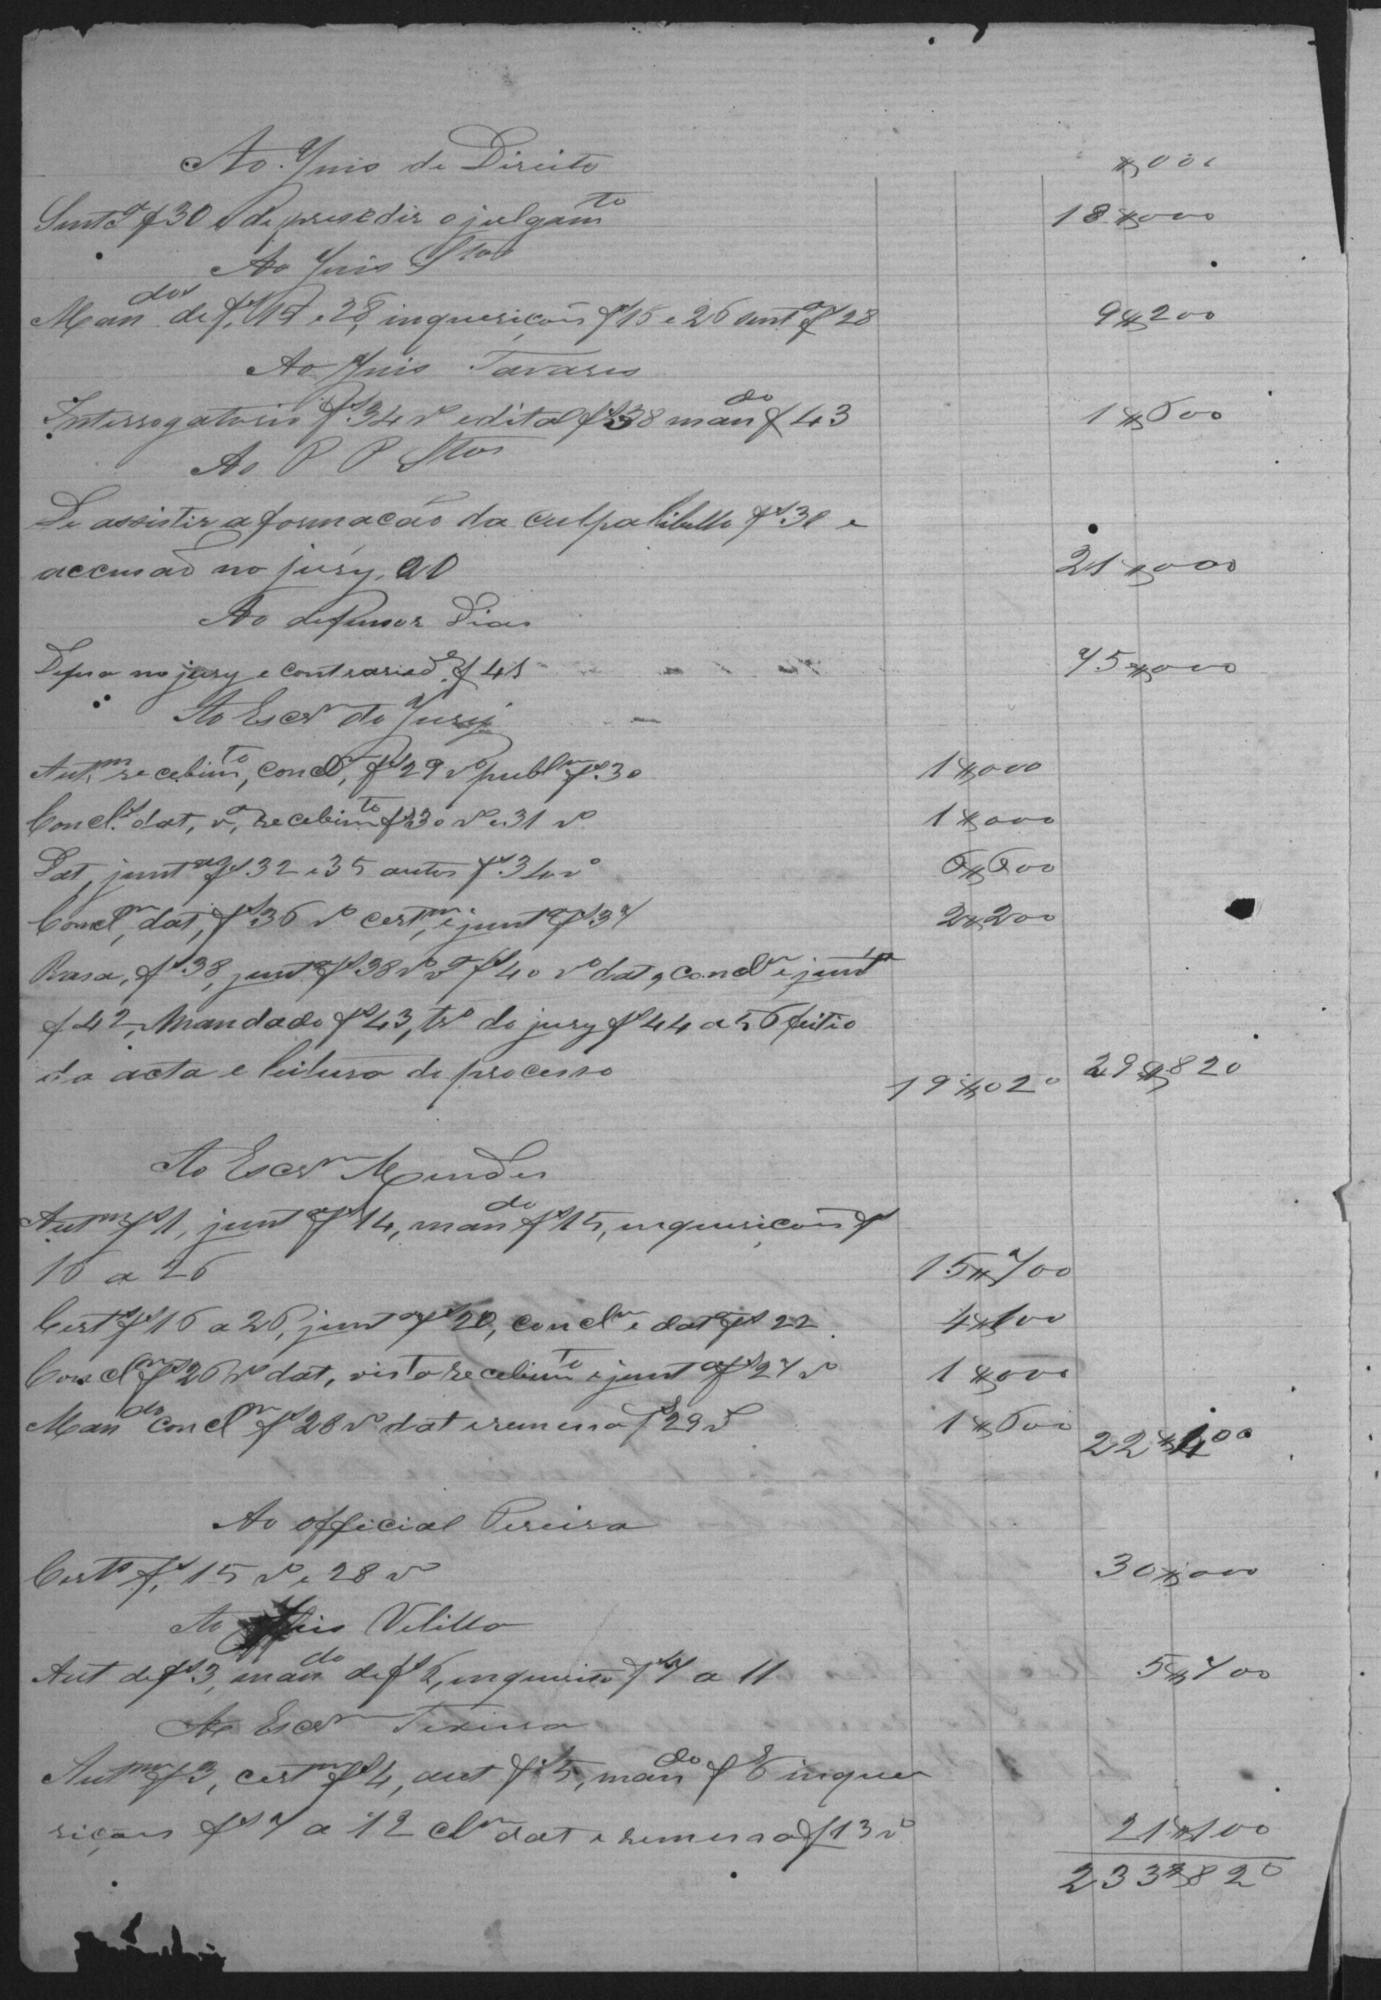 Ao Juis de Direito $000
Sentça fs 30 e de presedir o julgamto 18$000
Ao Juis Stos
Mandos de fs 15 e 28, inquerições fs 16 e 26 senta fs 28 9$200
Ao Juis Tavares
Interrogatorio fs 34 vo edital fs 38 mando f 43 1$600
Ao P P Stos
De assistir a formacão da culpa libello fs 31 e
accusaõ no jury, 20 21$000
Ao defensor Dias
Defesa no jury e contrariede f 41 75$000
Ao Escrm do Jury
Autm recebimto, concl, fs 29 vo publm fs 30 1$000
Concls dat, va, recebimto fs 30 vo e 31 vo 1$000
Dat, junta fs 32 e 35 autos fs 34 vo 6$600
Conclm, dat, fs 36 vo certm, e junta fs 37 2$200
Rasa, fs 38, junta fs 38 vo va fs 40 vo dat, conclm e junta
f 42, Mandado fs 43, tro do jury fs 44 a 56 feitio
da acta e leitura do processo 19$020 29$820
Ao Escrm Mendes
Autm fs 1, junta fs 14, mando fs 15, inquerições fs
16 a 26 15$700
Cert fs 16 a 26, junta fs 20, conclm e data fs 22 4$100
Conclm fs 26 vo dat, vista recebimto e junta fs 27 vo 1$000
Mando conclm fs 28 vo dat e remessa fs 29 v 1$600 22$400
Ao official Pereira
Certo fs 15 vo e 28 vo 30$000
Ao Juis Velillo
Aut de fs 3, mando de fs 6, inquirição fs 7 a 11 5$700
Ao Escrm Teixeira
Autm fs 3, certm fs 4, aut fs 5, mando f 6 inque
rições fs 7 a 12 clm dat e remessa f 13 vo 21$100
233$820